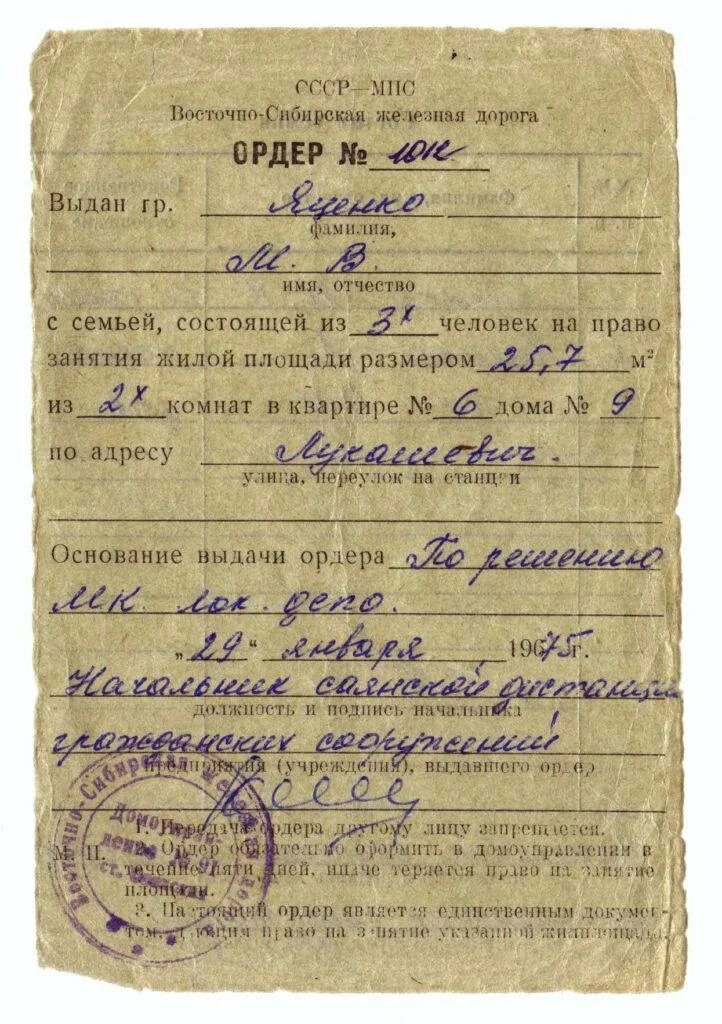 СССР—МПС
Восточно-Сибирская железная дорога
ОРДЕР № лок
Выдан гр. Яценко
фамилия,
М. В.
имя, отчество
с семьей, состоящей из 3х человек на право
занятия жилой площади размером 25,7 м²
из 2х комнат в квартире № 6 дома № 9
по адресу Лукашевич.
улица, переулок на станции
Основание выдачи ордера По решению
МК. лок. депо.
„29“ января 1975г.
Начальник саянской дистанции
должность и подпись начальника
гражданских сооружений
предприятия (учреждения), выдавшего ордер
1. Передача ордера другому лицу запрещается.
М. П. 2. Ордер обязательно оформить в домоуправлении в
течение пяти дней, иначе теряется право на занятие
площади.
3. Настоящий ордер является единственным докумен-
том, дающим право на занятие указанной жилплощади.
Восточно-Сибирская железная дор
Домоуправление
ст.